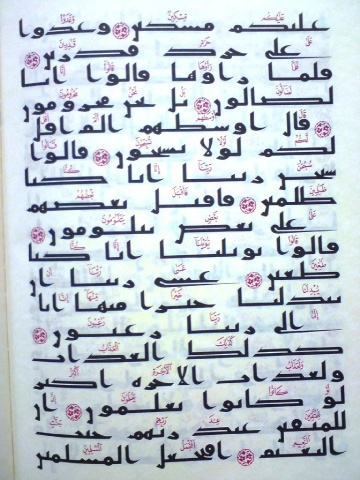 عليكم مسكين وغدوا
على حرد قدرين
فلما راوها قالوا انا
لضالون بل نحن محرومون
قال اوسطهم الم اقل
لكم لولا تسبحون قالوا
سبحن ربنا انا كنا
ظلمين فاقبل بعضهم
على بعض يتلومون
قالوا يويلنا انا كنا
طغين عسى ربنا ان
يبدلنا خيرا منها انا
الى ربنا رغبون
كذلك العذاب
ولعذاب الاخره اكبر
لو كانوا يعلمون ان
للمتقين عند ربهم جنت
النعيم افنجعل المسلمين